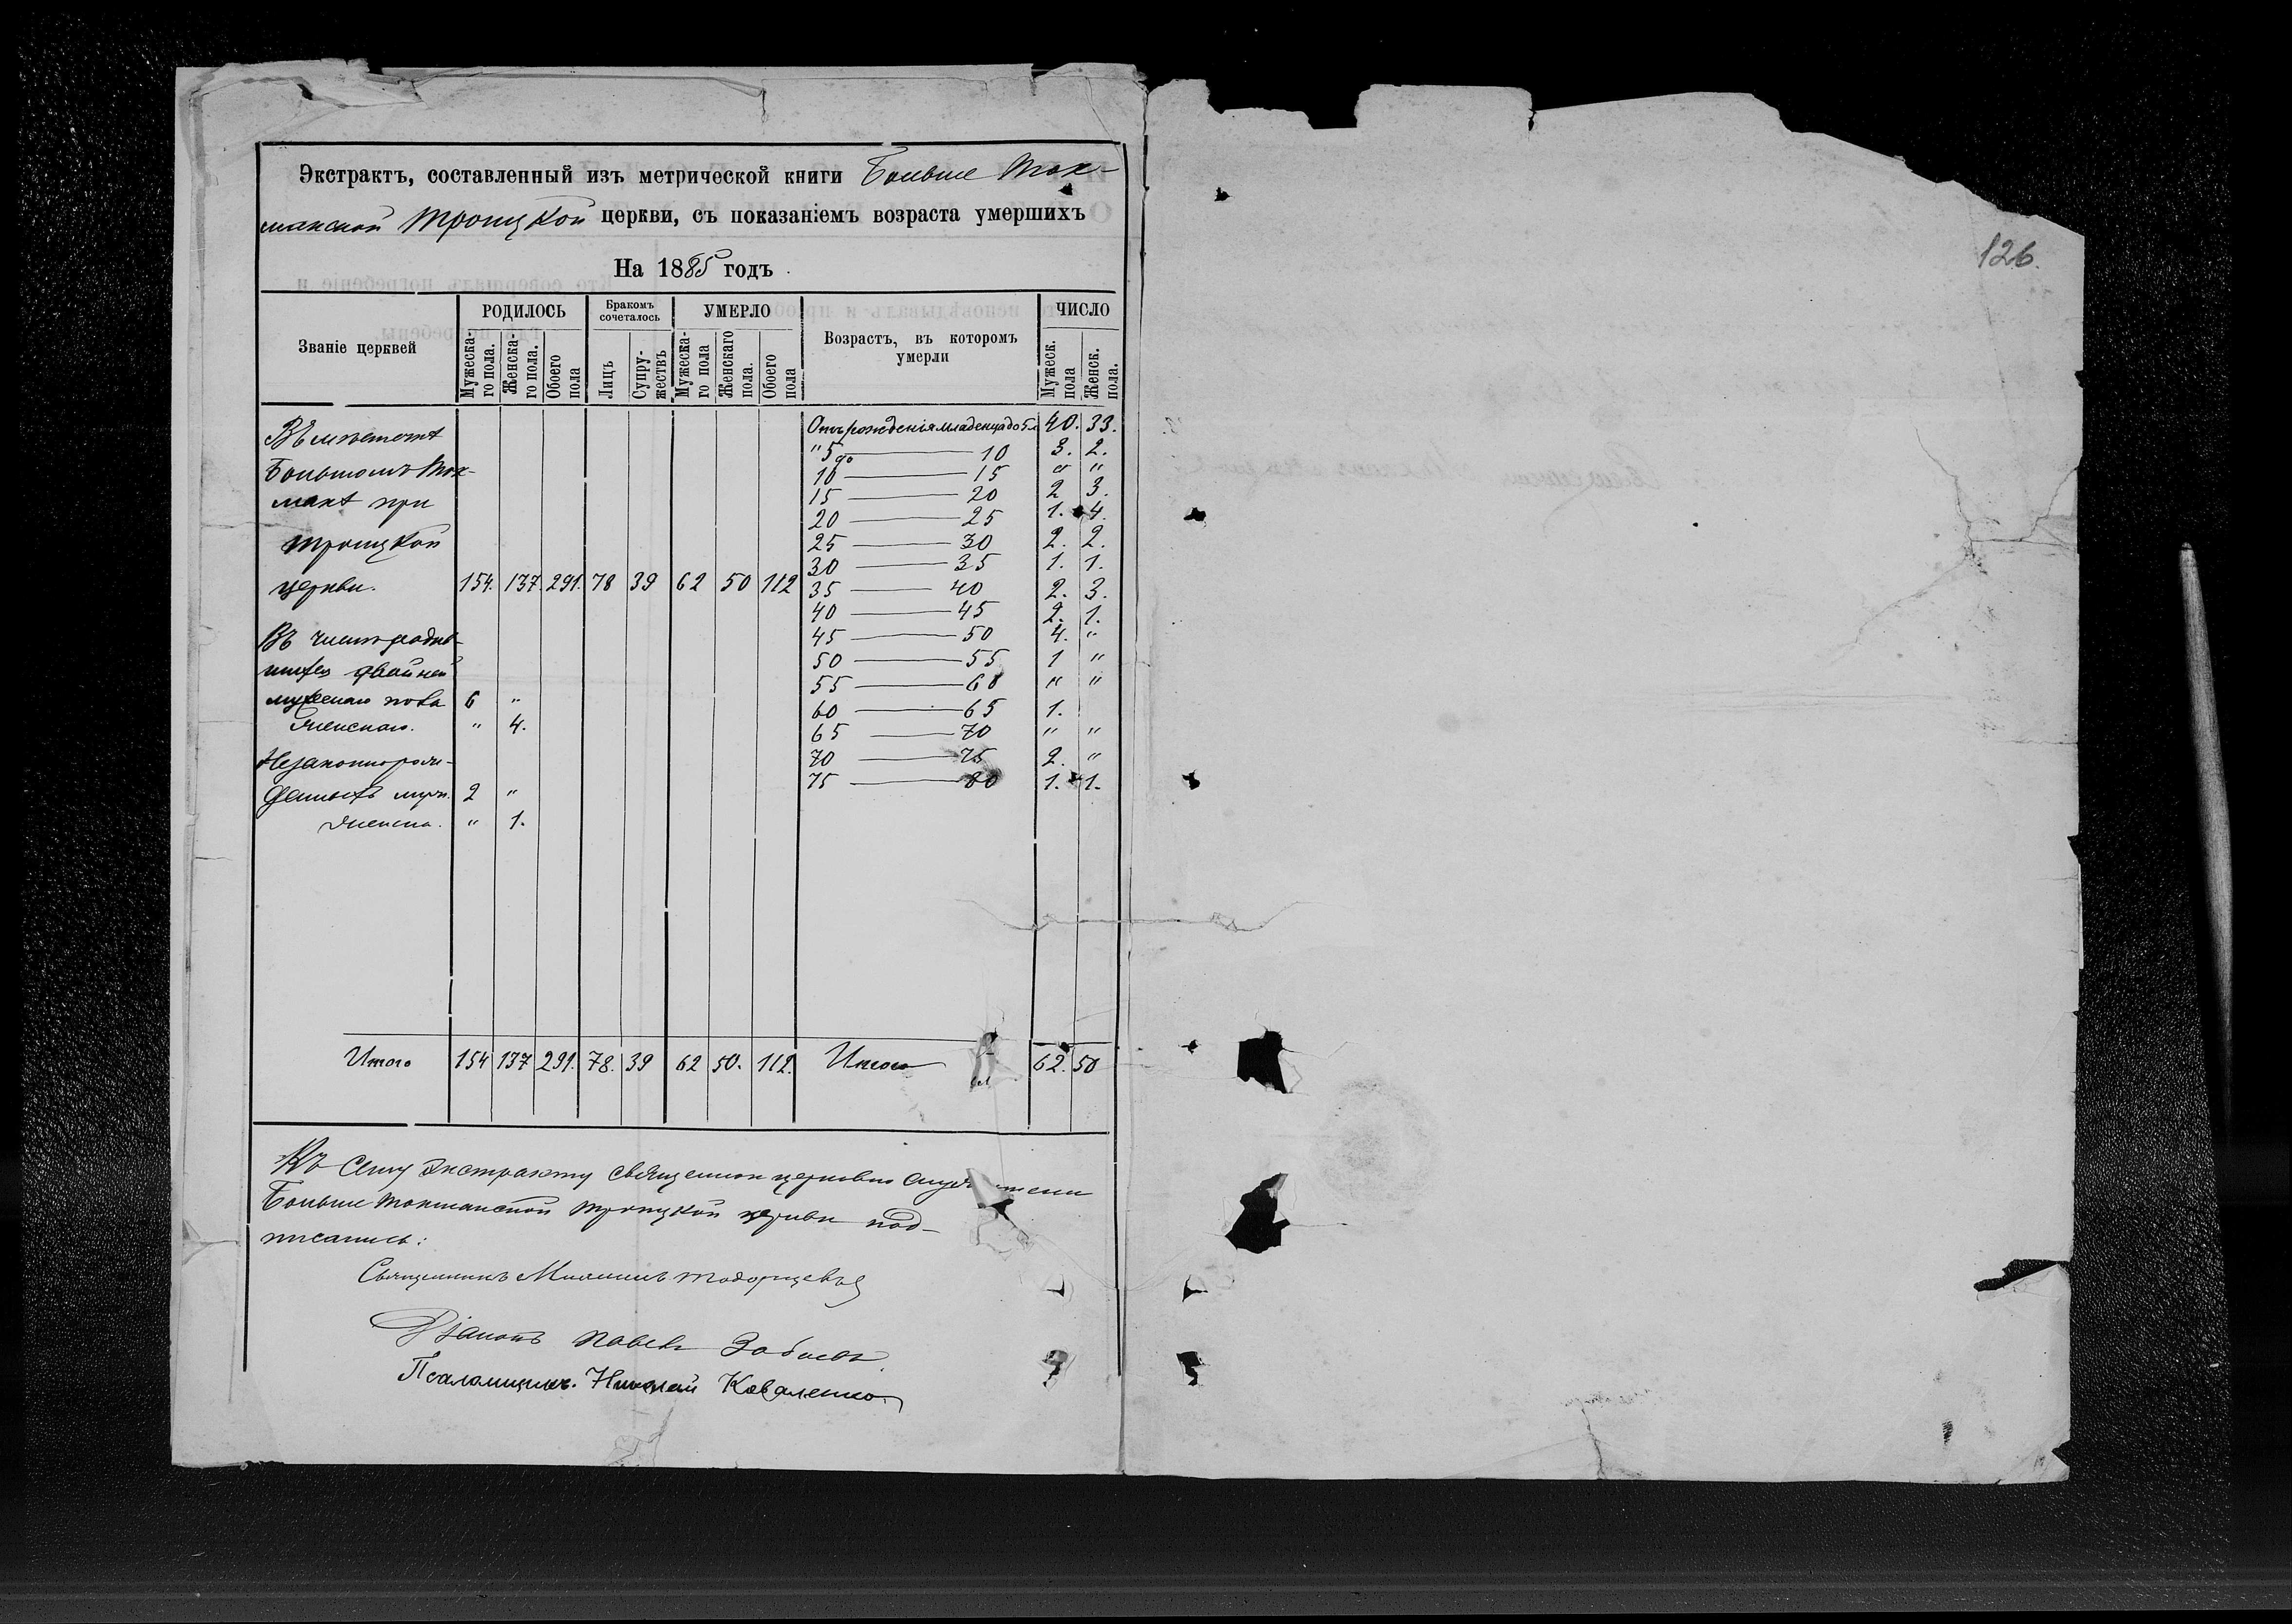 Экстрактъ, составленный изъ метрической книги Больше Ток-
макской Троицкой церкви, съ показаніемъ возраста умершихъ
На 1885 годъ
Званіе церквей
РОДИЛОСЬ
Мужеска-го пола.
Женска-го пола.
Обоего пола
Бракомъ сочеталось
Лицъ
Супру-жествъ
УМЕРЛО
Мужеска-го пола
Женскаго пола.
Обоего пола
Возрастъ, въ которомъ умерли
ЧИСЛО
Мужеск. пола
Женск. пола.
Въ мѣстечкѣ
Большомъ Ток-
макѣ при
Троицкой
церкви. 154. 137. 291. 78 39 62 50 112
Въ числѣ родив-
шихся двойней
мужескаго пола 6 "
Женскаго. " 4.
Незаконнорож-
денныхъ муж. 2 "
женска. " 1.
Отъ рожденія младенца до 5 л 40. 33.
" 5 до 10 3. 2.
10 — 15 " "
15 — 20 2 3.
20 — 25 1. 4.
25 — 30 2. 2.
30 — 35 1. 1.
35 — 40 2. 3.
40 — 45 2. 1.
45 — 50 4. "
50 — 55 1 "
55 — 60 " "
60 — 65 1.
65 — 70 " "
70 — 75 2. "
75 — 80 1. 1.
Итого 154 137 291. 78. 39 62 50. 112. Итого 62. 50
Къ сему экстракту священно церковно служители
Больше Токмакской Троицкой церкви под-
писались:
Священникъ
Діаконъ Павелъ
Псаломщикъ. Николай Коваленко
126.